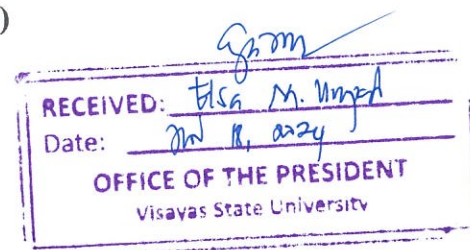 )
RECEIVED: Elsa M.
Date: 18, 2024
OFFICE OF THE PRESIDENT
Visayas State University